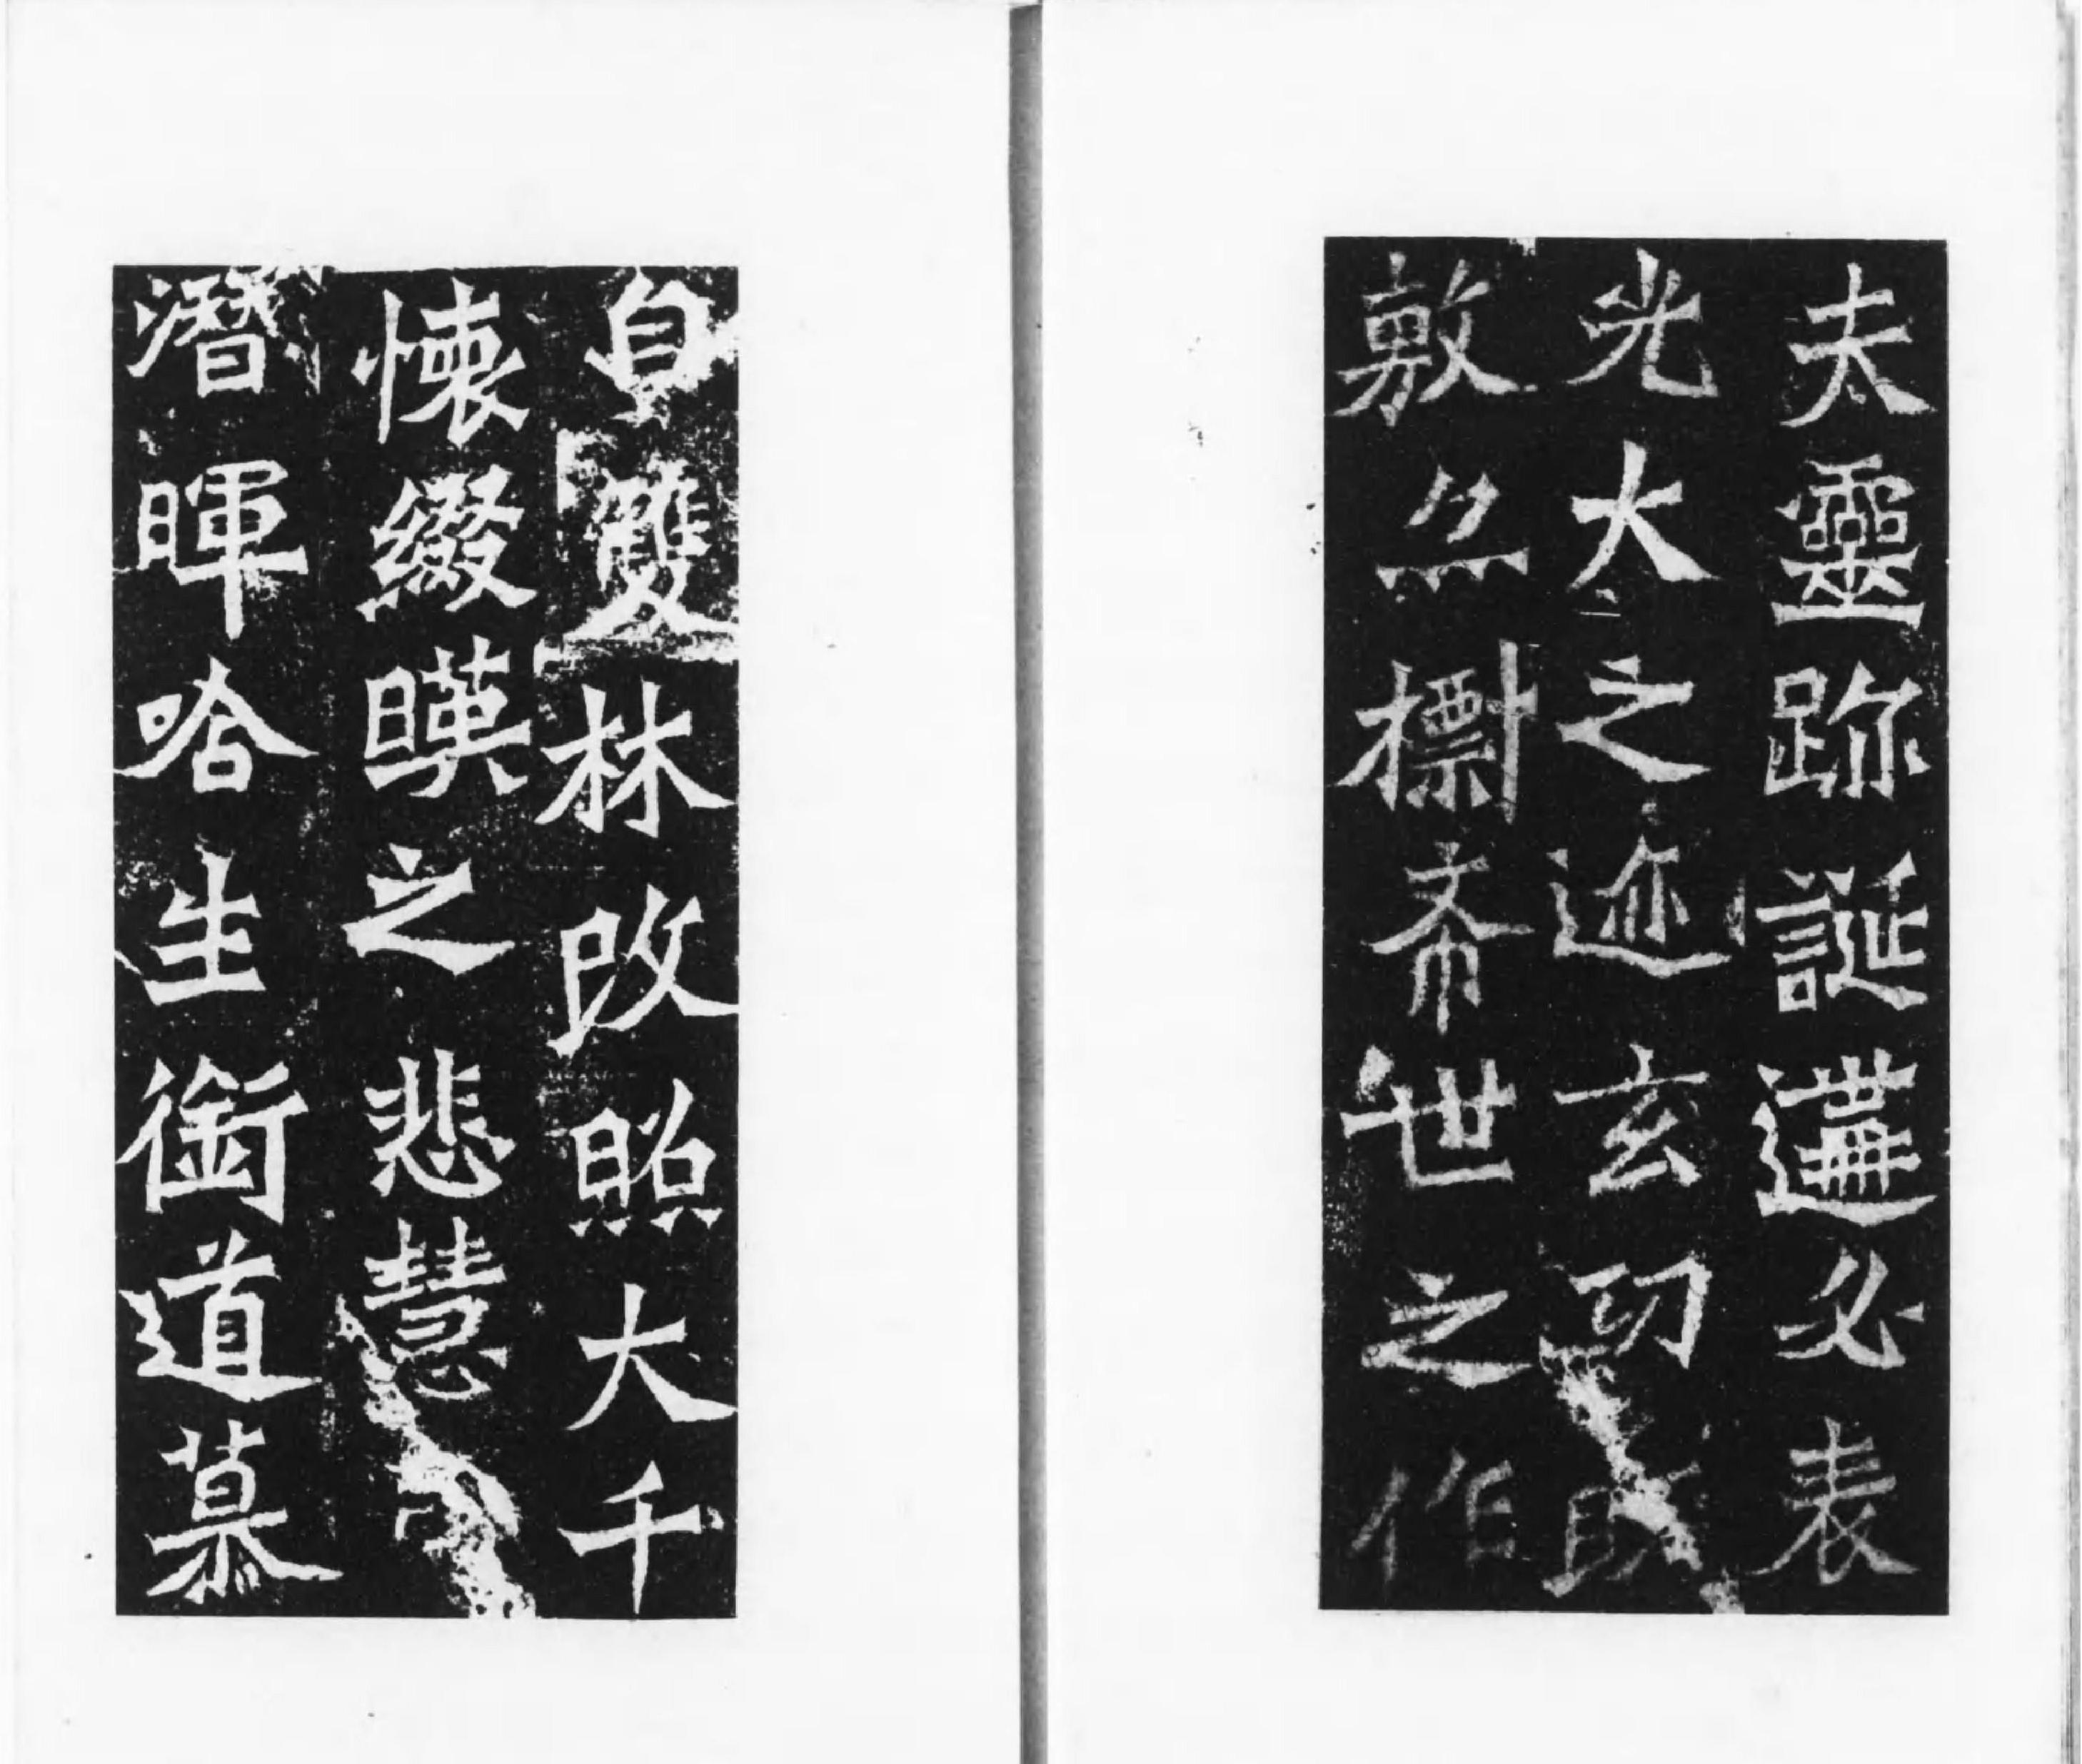 夫靈跡誕遘必表
光大之迹玄功既
敷亦摽希世之作
自雙林改照大千
懷綴暎之悲慧日
潛暉唅生銜道慕